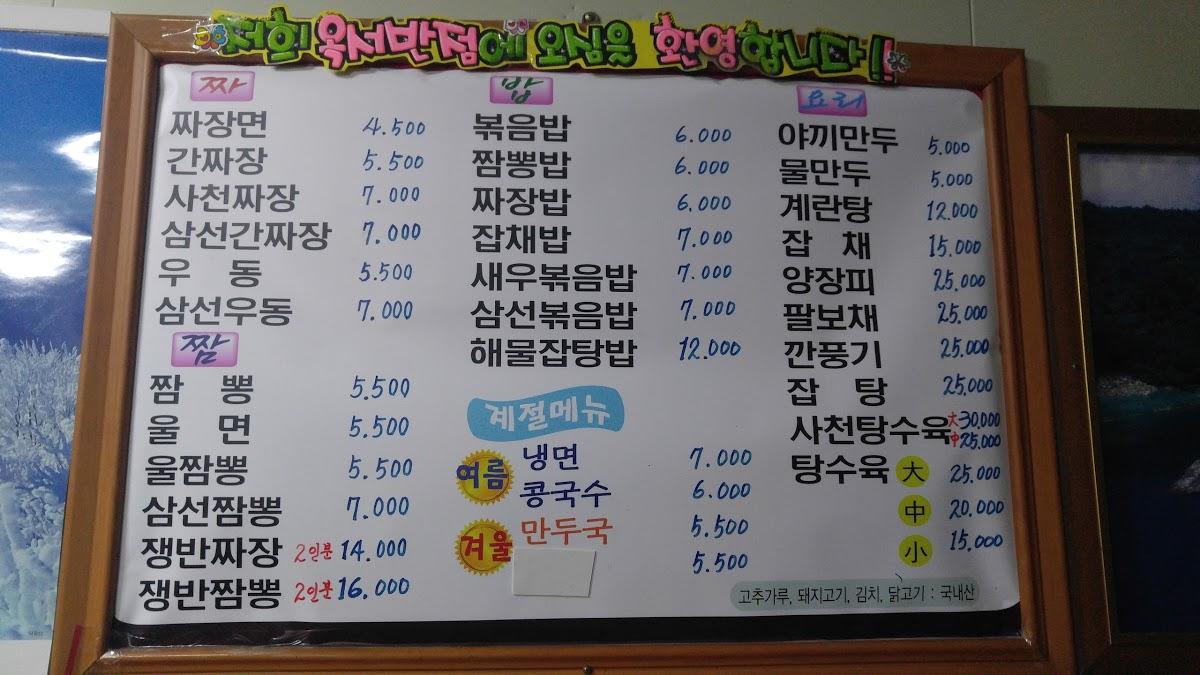 저희 옥서반점에 오심을 환영합니다!!
짜
짜장면 4.500
간짜장 5.500
사천짜장 7.000
삼선간짜장 7.000
우 동 5.500
삼선우동 7.000
짬
짬 뽕 5.500
울 면 5.500
울짬뽕 5.500
삼선짬뽕 7.000
쟁반짜장 2인분 14.000
쟁반짬뽕 2인분 16.000
밥
볶음밥 6.000
짬뽕밥 6.000
짜장밥 6.000
잡채밥 7.000
새우볶음밥 7.000
삼선볶음밥 7.000
해물잡탕밥 12.000
계절메뉴
여름 냉면 7.000
콩국수 6.000
겨울 만두국 5.500
5.500
요리
야끼만두 5.000
물만두 5.000
계란탕 12.000
잡 채 15.000
양장피 25.000
팔보채 25.000
깐풍기 25.000
잡 탕 25.000
사천탕수육 大30,000
中25.000
탕수육 大 25.000
中 20.000
小 15.000
고추가루, 돼지고기, 김치, 닭고기 : 국내산